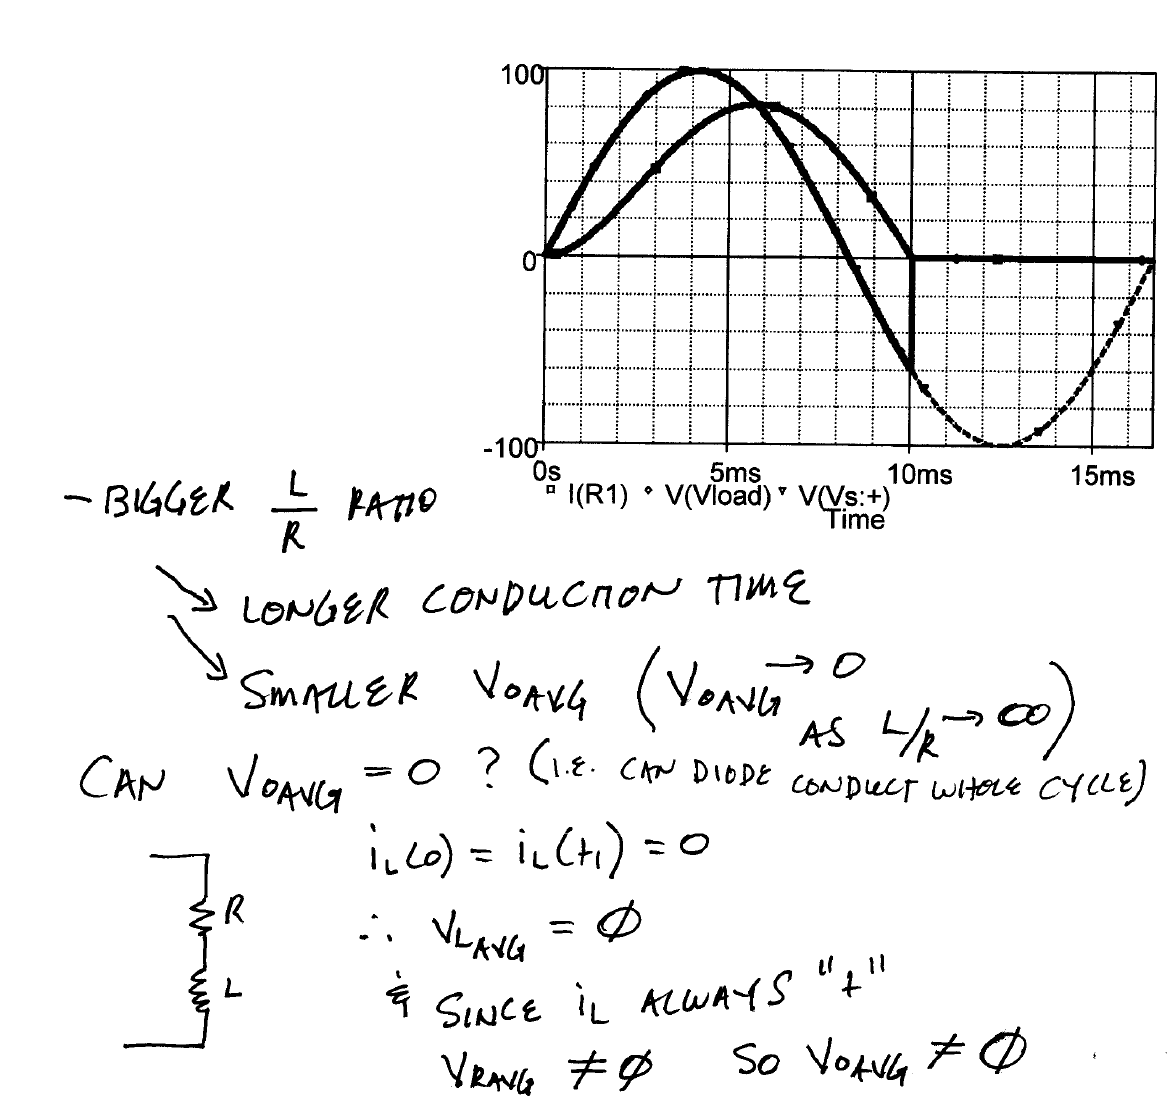 100
0
-100
0s 5ms 10ms 15ms
I(R1) V(Vload) V(Vs:+)
Time
- BIGGER L/R RATIO
LONGER CONDUCTION TIME
SMALLER VOAVG (VOAVG → 0
AS L/R → ∞)
CAN VOAVG = 0 ? (I.E. CAN DIODE CONDUCT WHOLE CYCLE)
iL(0) = iL(t1) = 0
∴ VLAVG = Ø
R
L
& SINCE iL ALWAYS "+"
VRAVG ≠ Ø SO VOAVG ≠ Ø